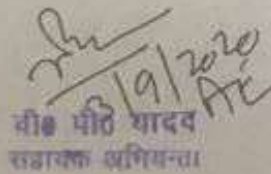 3/9/2020
AE
वी० पी० यादव
सहायक अभियन्ता